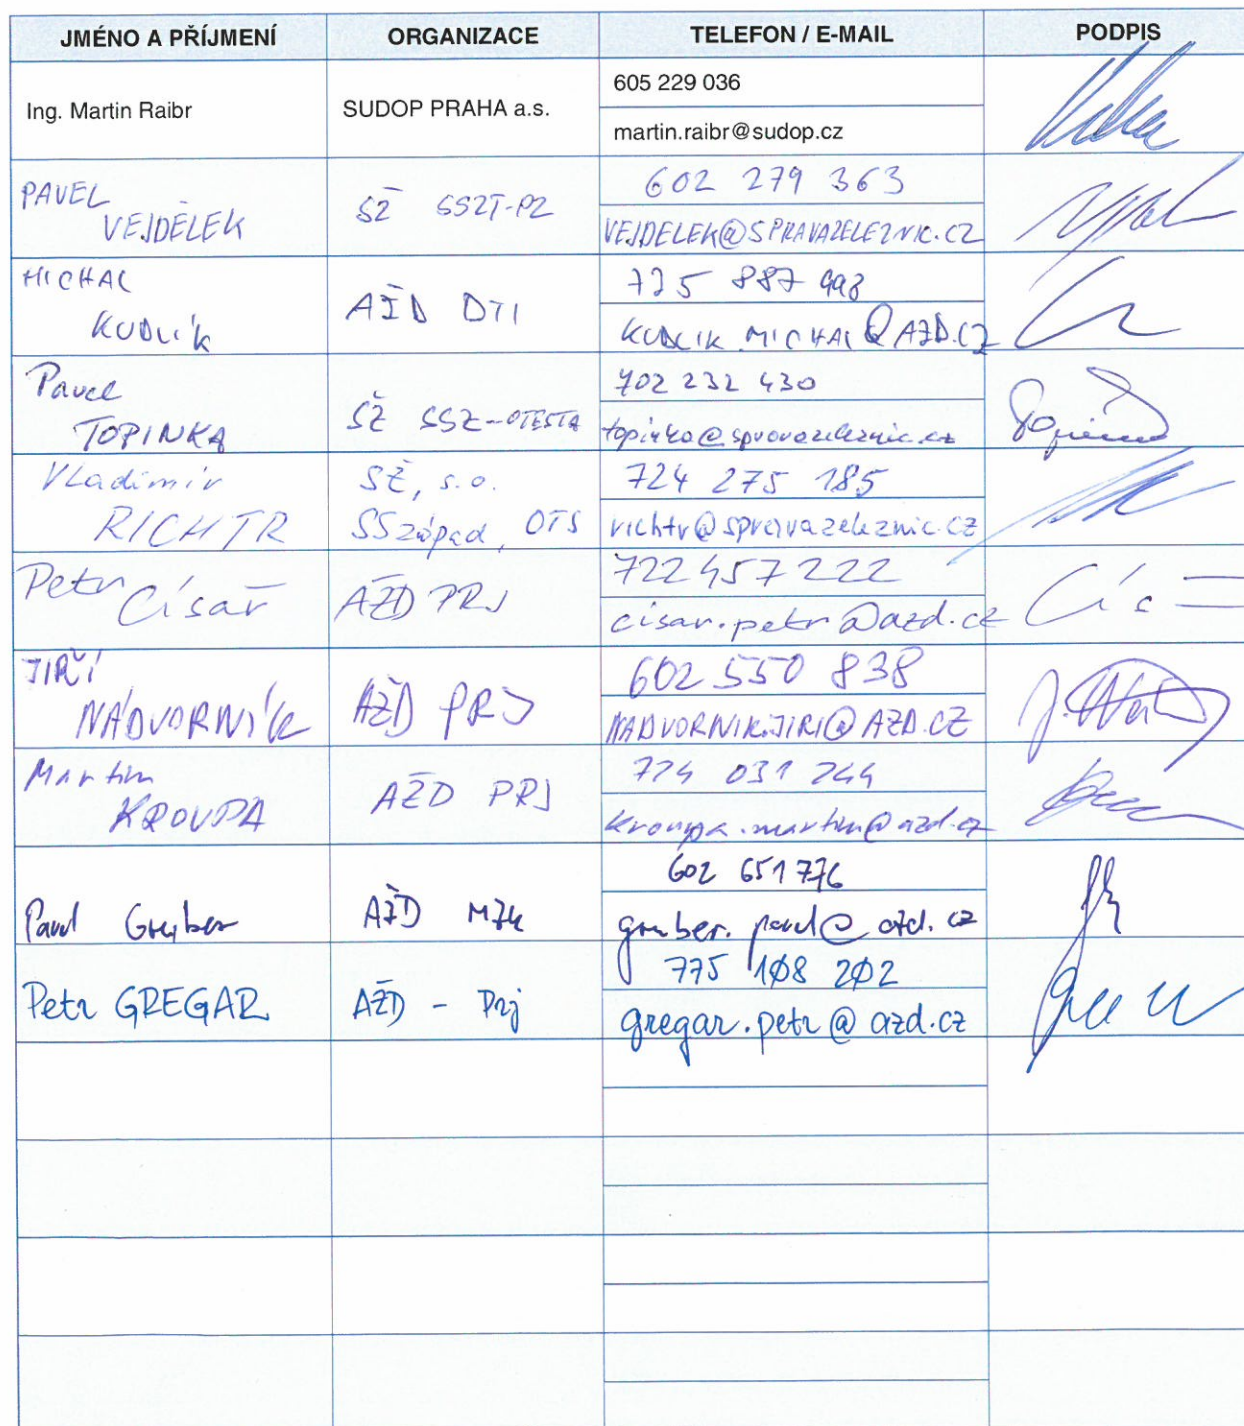 JMÉNO A PŘÍJMENÍ ORGANIZACE TELEFON / E-MAIL PODPIS
Ing. Martin Raibr SUDOP PRAHA a.s. 605 229 036
martin.raibr@sudop.cz
PAVEL VEJDĚLEK SŽ SSZT-PZ 602 279 363
VEJDELEK@SPRAVAZELEZNIC.CZ
MICHAL KUDLÍK AŽD DTI 725 887 998
KUDLIK.MICHAL@AZD.CZ
Pavel TOPINKA SŽ SSZ-OTESTA 702 232 430
topinka@spravazeleznic.cz
Vladimír RICHTR SŽ, s.o. 724 275 185
SSzápad, OTS richtr@spravazeleznic.cz
Petr Císař AŽD PRJ 722457222
cisar.petr@azd.cz
JIŘÍ NÁDVORNÍK AŽD PRJ 602 550 838
NADVORNIK.JIRI@AZD.CZ
Martin KROUPA AŽD PRJ 724 031 244
kroupa.martin@azd.cz
Pavel Gruber AŽD 602 651 776
gruber.pavel@azd.cz
Petr GREGAR AŽD - Prj 775 108 202
gregar.petr@azd.cz